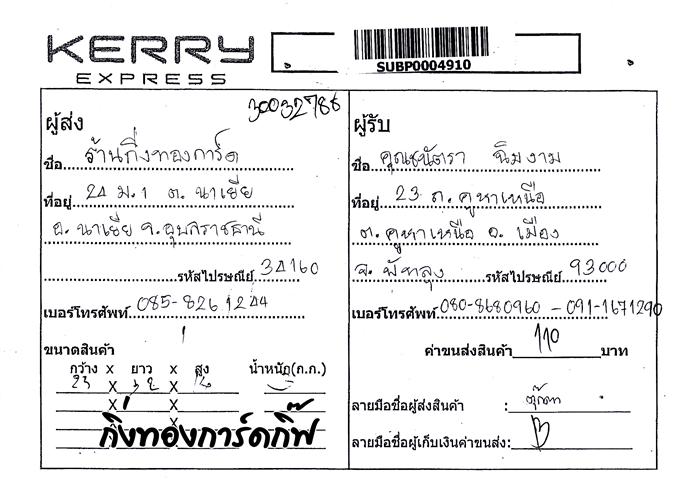 KERRY
EXPRESS
SUBP0004910
ผู้ส่ง
30032786
ชื่อ ร้านกิ่งทองการ์ด
ที่อยู่ 24 ม.1 ต. นาเยีย
อ. นาเยีย จ.อุบลราชธานี
รหัสไปรษณีย์ 34160
เบอร์โทรศัพท์ 085-826 1244
ขนาดสินค้า
กว้าง x ยาว x สูง น้ำหนัก(ก.ก.)
23 X X
X X
X X
กิ่งทองการ์ดกิ๊ฟ
ผู้รับ
ชื่อ คุณชนัตรา นิมงาม
ที่อยู่ 23 ถ. คูหาเหนือ
ต. คูหาเหนือ อ. เมือง
จ. พัทลุง รหัสไปรษณีย์ 93000
เบอร์โทรศัพท์ 080-8680960 - 091-1671290
ค่าขนส่งสินค้า 110 บาท
ลายมือชื่อผู้ส่งสินค้า :
ลายมือชื่อผู้เก็บเงินค่าขนส่ง: